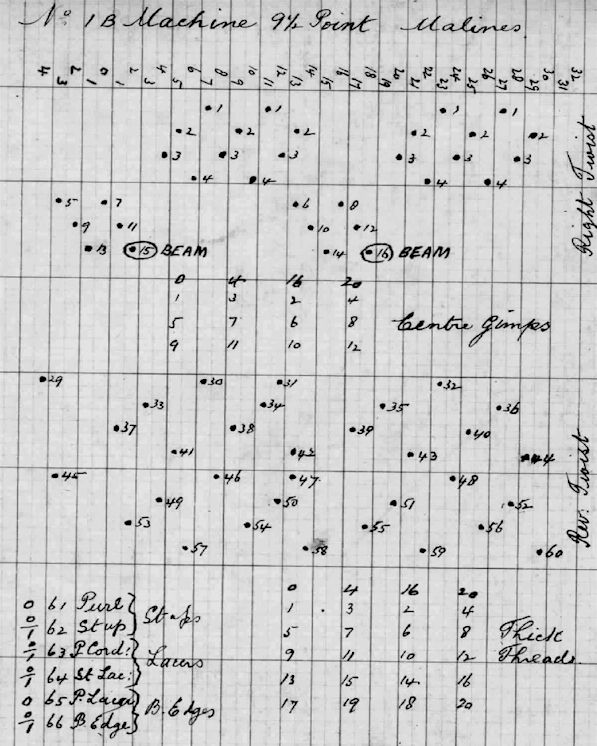 No 1B Machine 9½ Point Malines.
4 3 2 1 0 1 2 3 4 5 6 7 8 9 10 11 12 13 14 15 16 17 18 19 20 21 22 23 24 25 26 27 28 29 30 31 32
1 1 1 1
2 2 2 2 2 2
3 3 3 3 3 3
4 4 4 4
Right Twist
5 7 6 8
9 11 10 12
13 15 BEAM 14 16 BEAM
0 4 16 20
1 3 2 4
5 7 6 8 Centre Gimps
9 11 10 12
29 30 31 32
33 34 35 36
37 38 39 40
41 42 43 44
Rev: Twist
45 46 47 48
49 50 51 52
53 54 55 56
57 58 59 60
0 4 16 20
0 61 Purl 1 3 2 4
0/1 62 St up Stups 5 7 6 8 Thick
0/1 63 P Cord: 9 11 10 12 Threads.
0/1 64 St Lac: Lacers 13 15 14 16
0 65 P. Lacer 17 19 18 20
0/1 66 B. Edge B. Edges